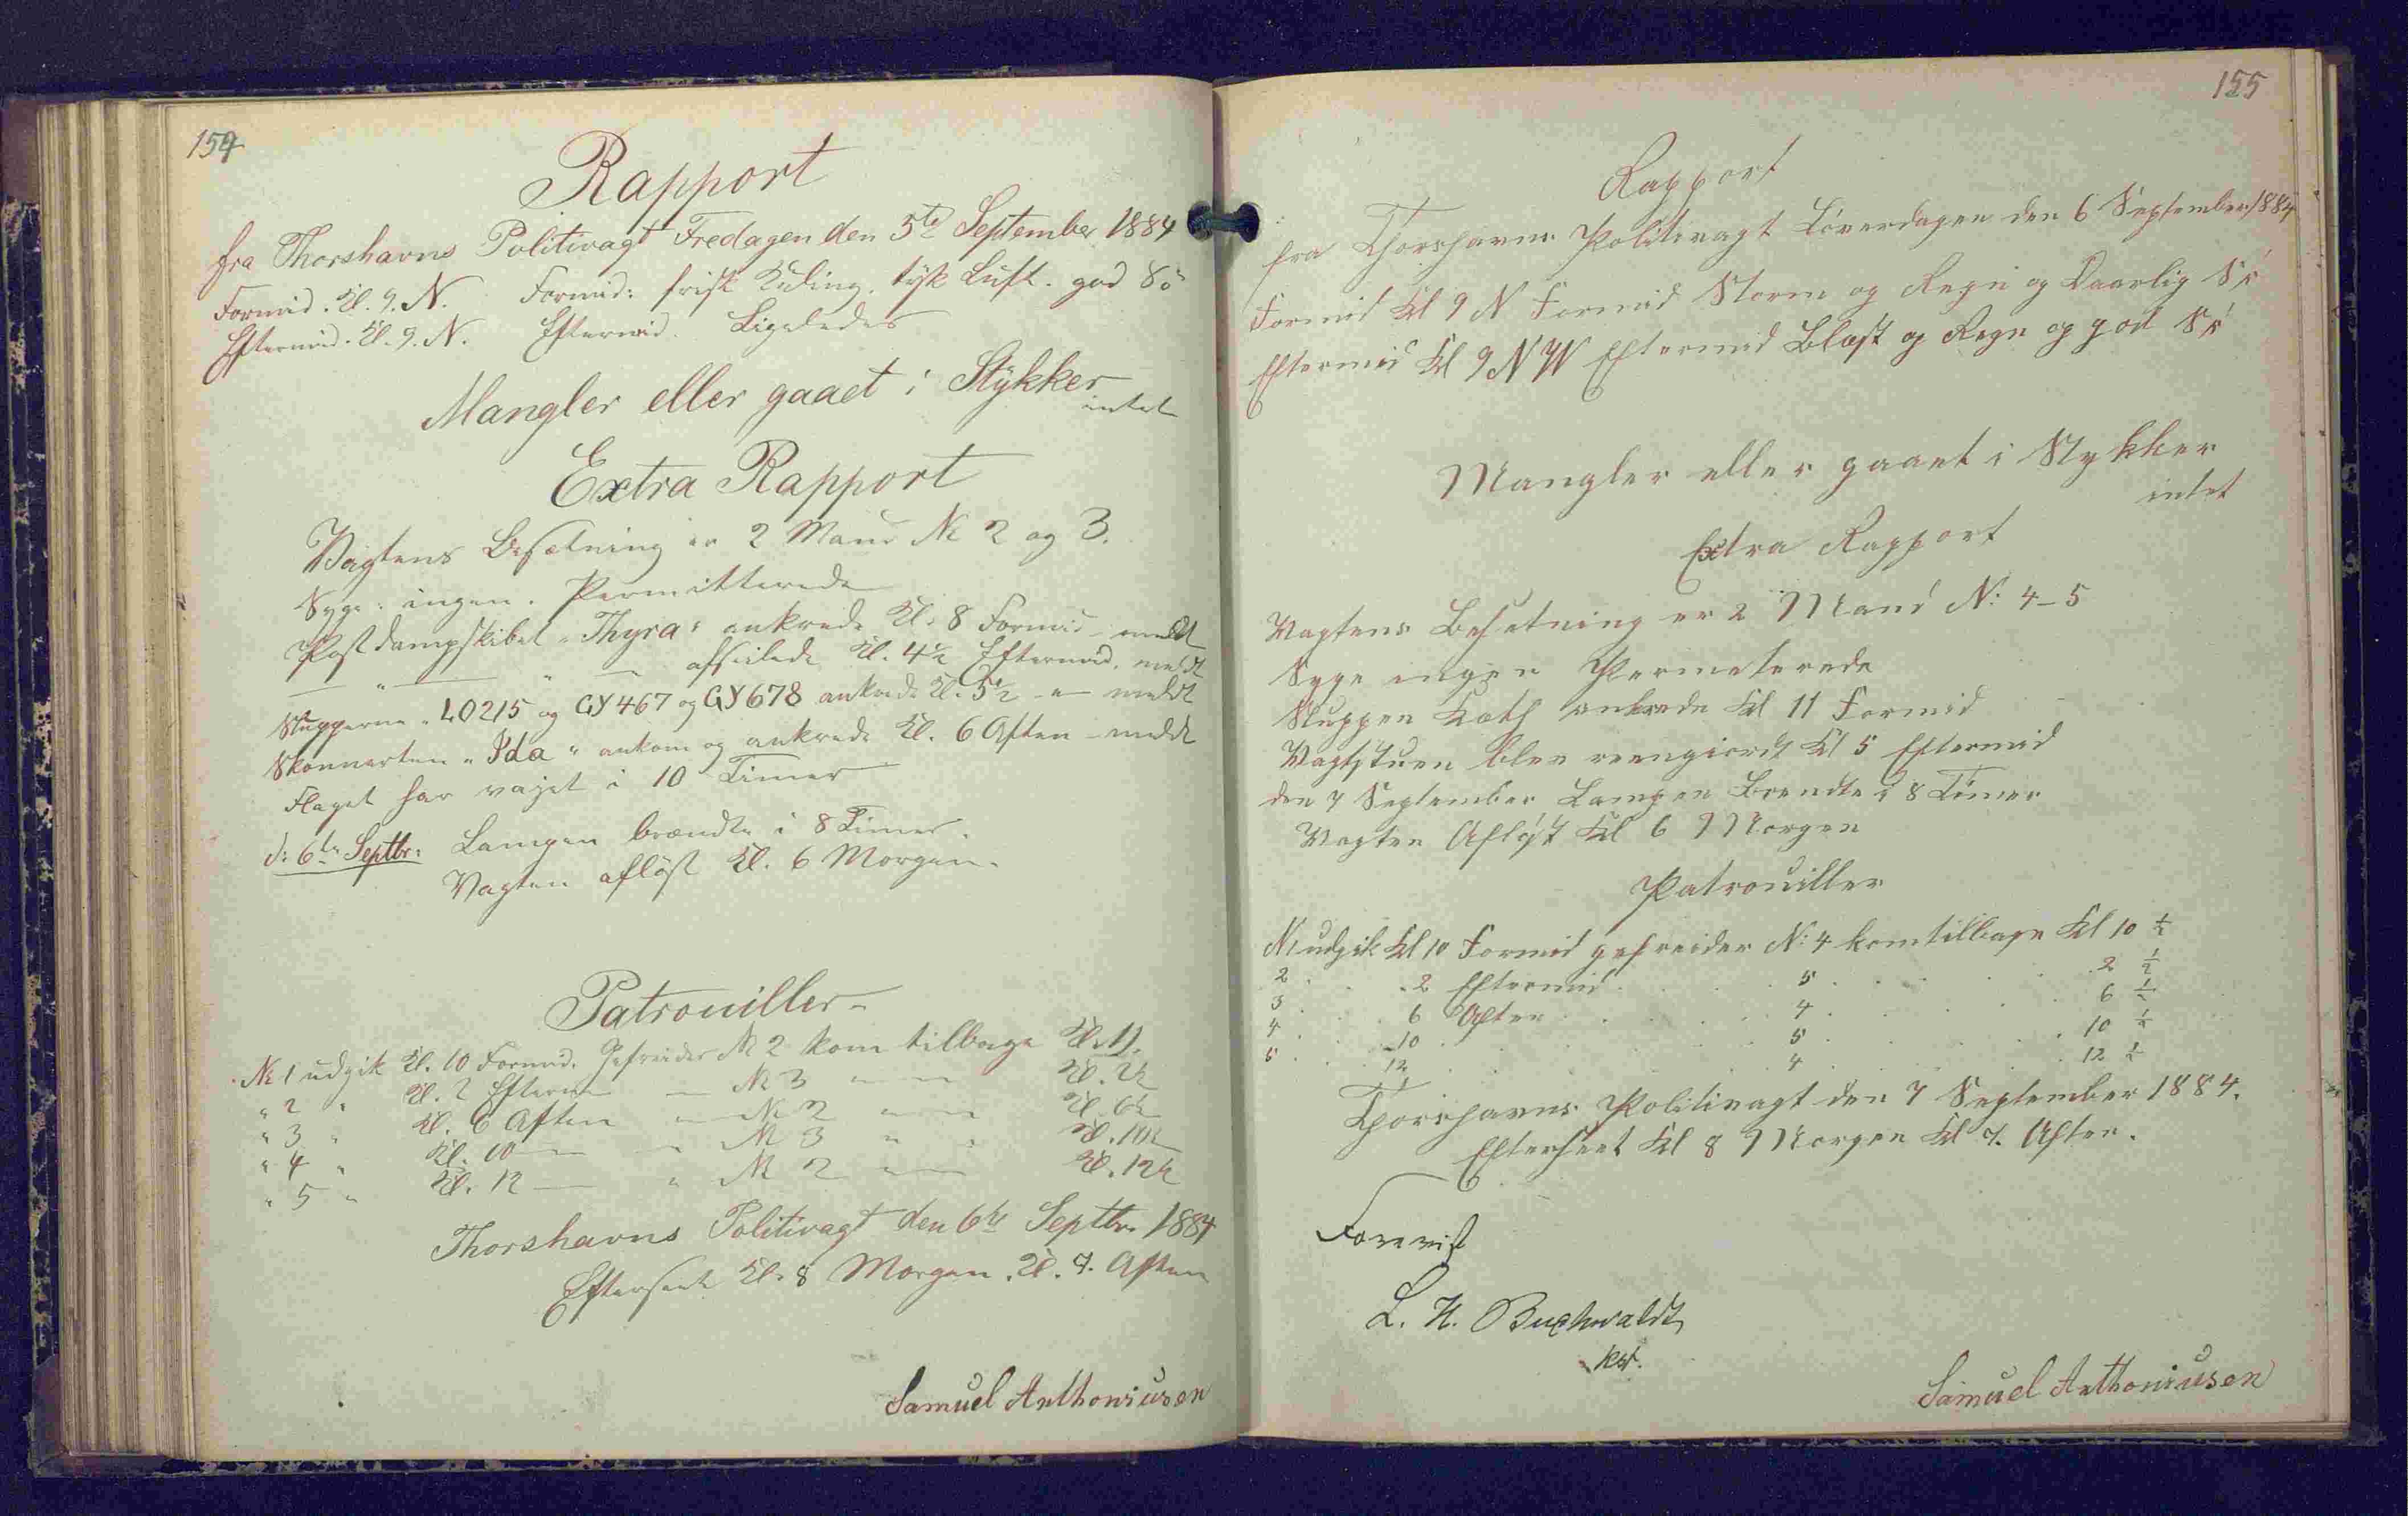 154
Rapport
fra Thorshavns Politivagt Fredagen den 5te September 1884
Formid. Kl. 9. N. Formid: frisk Kuling, tyk Luft. god Sö
Eftermid. Kl. 9. N. Eftermid. Ligeledes
Mangler eller gaaet i Stykker
intet
Extra Rapport
Vagtens Besætning er 2 Mand № 2 og 3.
Syge: ingen. Permitterede
Postdampskibet "Thyra" ankrede Kl. 8 Formid – meldt
— " — " — afseilede Kl. 4½ Eftermid. meldt
Slupperne "LO215 og GY467 og GY678 ankrede Kl. 5½ – " – meldt
Skonnerten "Ida" ankom og ankrede Kl. 6 Aften – meldt
Flaget har vajet i 10 Timer
d: 6te Septbr: Lampen brændte i 8 Timer.
Vagten aflöst Kl. 6 Morgen.
Patrouiller
№ 1 udgik Kl. 10 Formid. Gefreider № 2 kom tilbage Kl. 11.
" 2 " Kl. 2 Efterm — № 3 " " Kl. 2½
" 3 " Kl. 6 Aften " № 2 " " Kl. 6½
" 4 " Kl. 10 — " № 3 " " Kl. 10½
" 5 " Kl. 12 — " № 2 " " Kl. 12½
Thorshavns Politivagt den 6te Septbr. 1884
Efterseet Kl. 8 Morgen. Kl. 7. Aften
Samuel Anthoniusen
155
Rapport
fra Thorshavns Politivagt Löverdagen den 6 September 1884
Formid Kl 9 N Formid Storm og Regn og Daarlig Sö
Eftermid Kl 9 N W Eftermid Blæst og Regn og god Sö
Mangler eller gaaet i Stykker
intet
Extra Rapport
Vagtens Besetning er 2 Mand N: 4–5
Syge ingen Permeterede
Sluppen ankrede Kl 11 Formid
Vagtstuen blev reengiordt Kl 5 Eftermid
den 7 September Lampen Brendte i 8 Timer
Vagten Afløst Kl 6 Morgen
Patrouiller
N 1 udgik Kl 10 Formid gefreider N: 4 kom tilbage Kl 10 ½
2 . . . 2 Eftermid . . . 5 . . . 2 ½
3 . . . 6 Aften . . . 4 . . . 6 ½
4 . . . 10 . . . 5 . . . 10 ½
5 . . . 12 . . . 4 . . . 12 ½
Thorshavns Politivagt den 7 September 1884.
Efterseet Kl 8 Morgen Kl 7. Aften.
Forevist
L. H. Buchwaldt
kst.
Samuel Anthoniusen